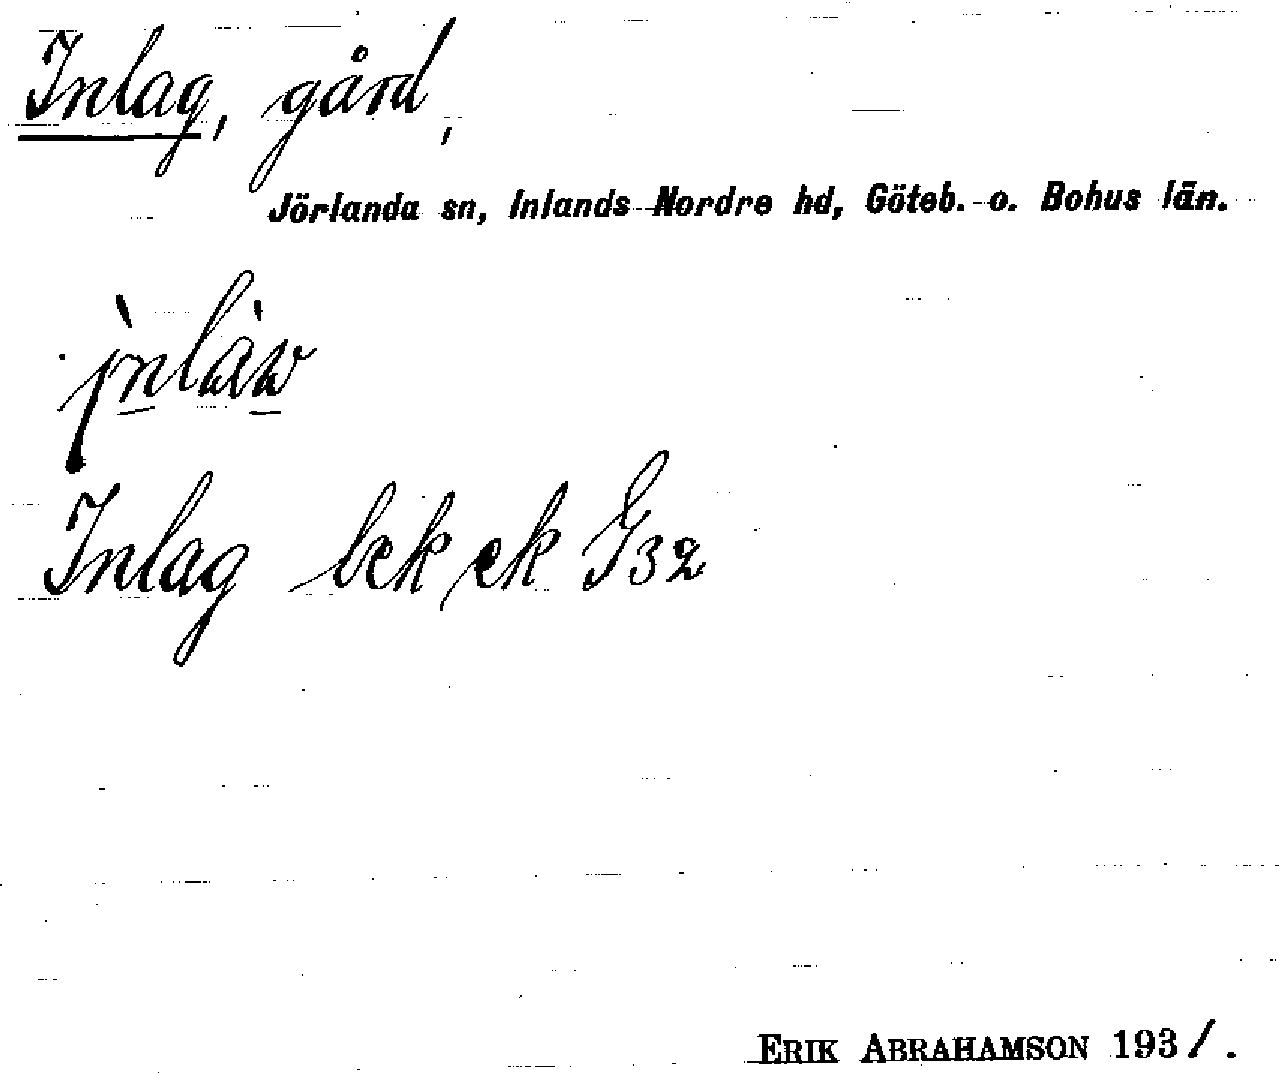 Inlag, gård,
Jörlanda sn, Inlands Nordre hd, Göteb. o. Bohus län.
Inlag bek ek G32
ERIK ABRAHAMSON 1931.